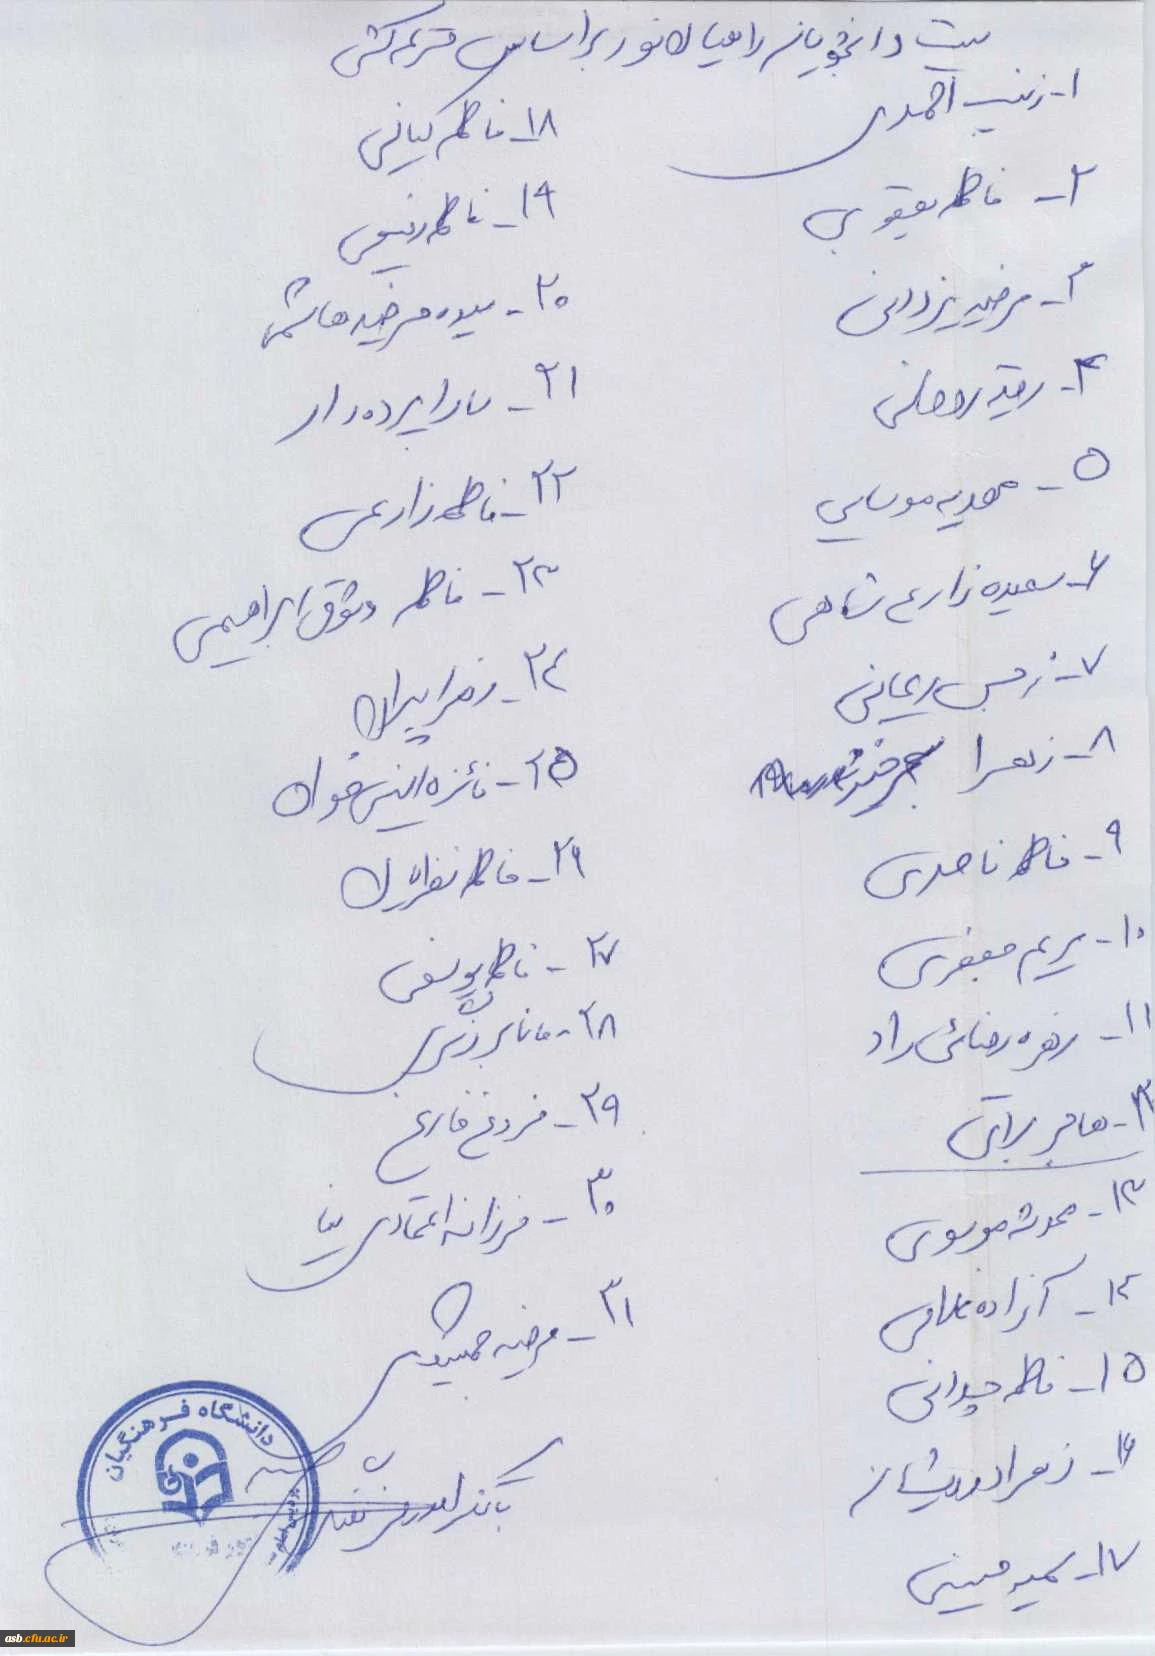 لیست دانشجویان راهیان نور براساس قرعه کشی
۱- زینب احمدی
۲- فاطمه یعقوبی
۳- مرضیه یزدانی
۴- رقیه رمضانی
۵- مهدیه موسایی
۶- سعیده زارع شاهی
۷- نرجس ریحانی
۸- زهرا
۹- فاطمه ناصری
۱۰- مریم جعفری
۱۱- زهره رضائی راد
۱۲- هاجر براتی
۱۳- محدثه موسوی
۱۴- آزاده غلامی
۱۵- فاطمه
۱۶- زهرا درویشان
۱۷- سمیه حسینی
۱۸- فاطمه کیانی
۱۹- فاطمه رفیعی
۲۰- سیده مرضیه هاشمی
۲۱- سارا پرده دار
۲۲- فاطمه زارعی
۲۳- فاطمه وثوق ابراهیمی
۲۴- زهرا پیران
۲۵- فائزه انیس خواه
۲۶- فاطمه
۲۷- فاطمه یوسفی
۲۸- مانا برزگری
۲۹- فروغ فارغ
۳۰- فرزانه اعتمادی نیا
۳۱- مرضیه جمشیدی
دانشگاه فرهنگیان
asb.cfu.ac.ir